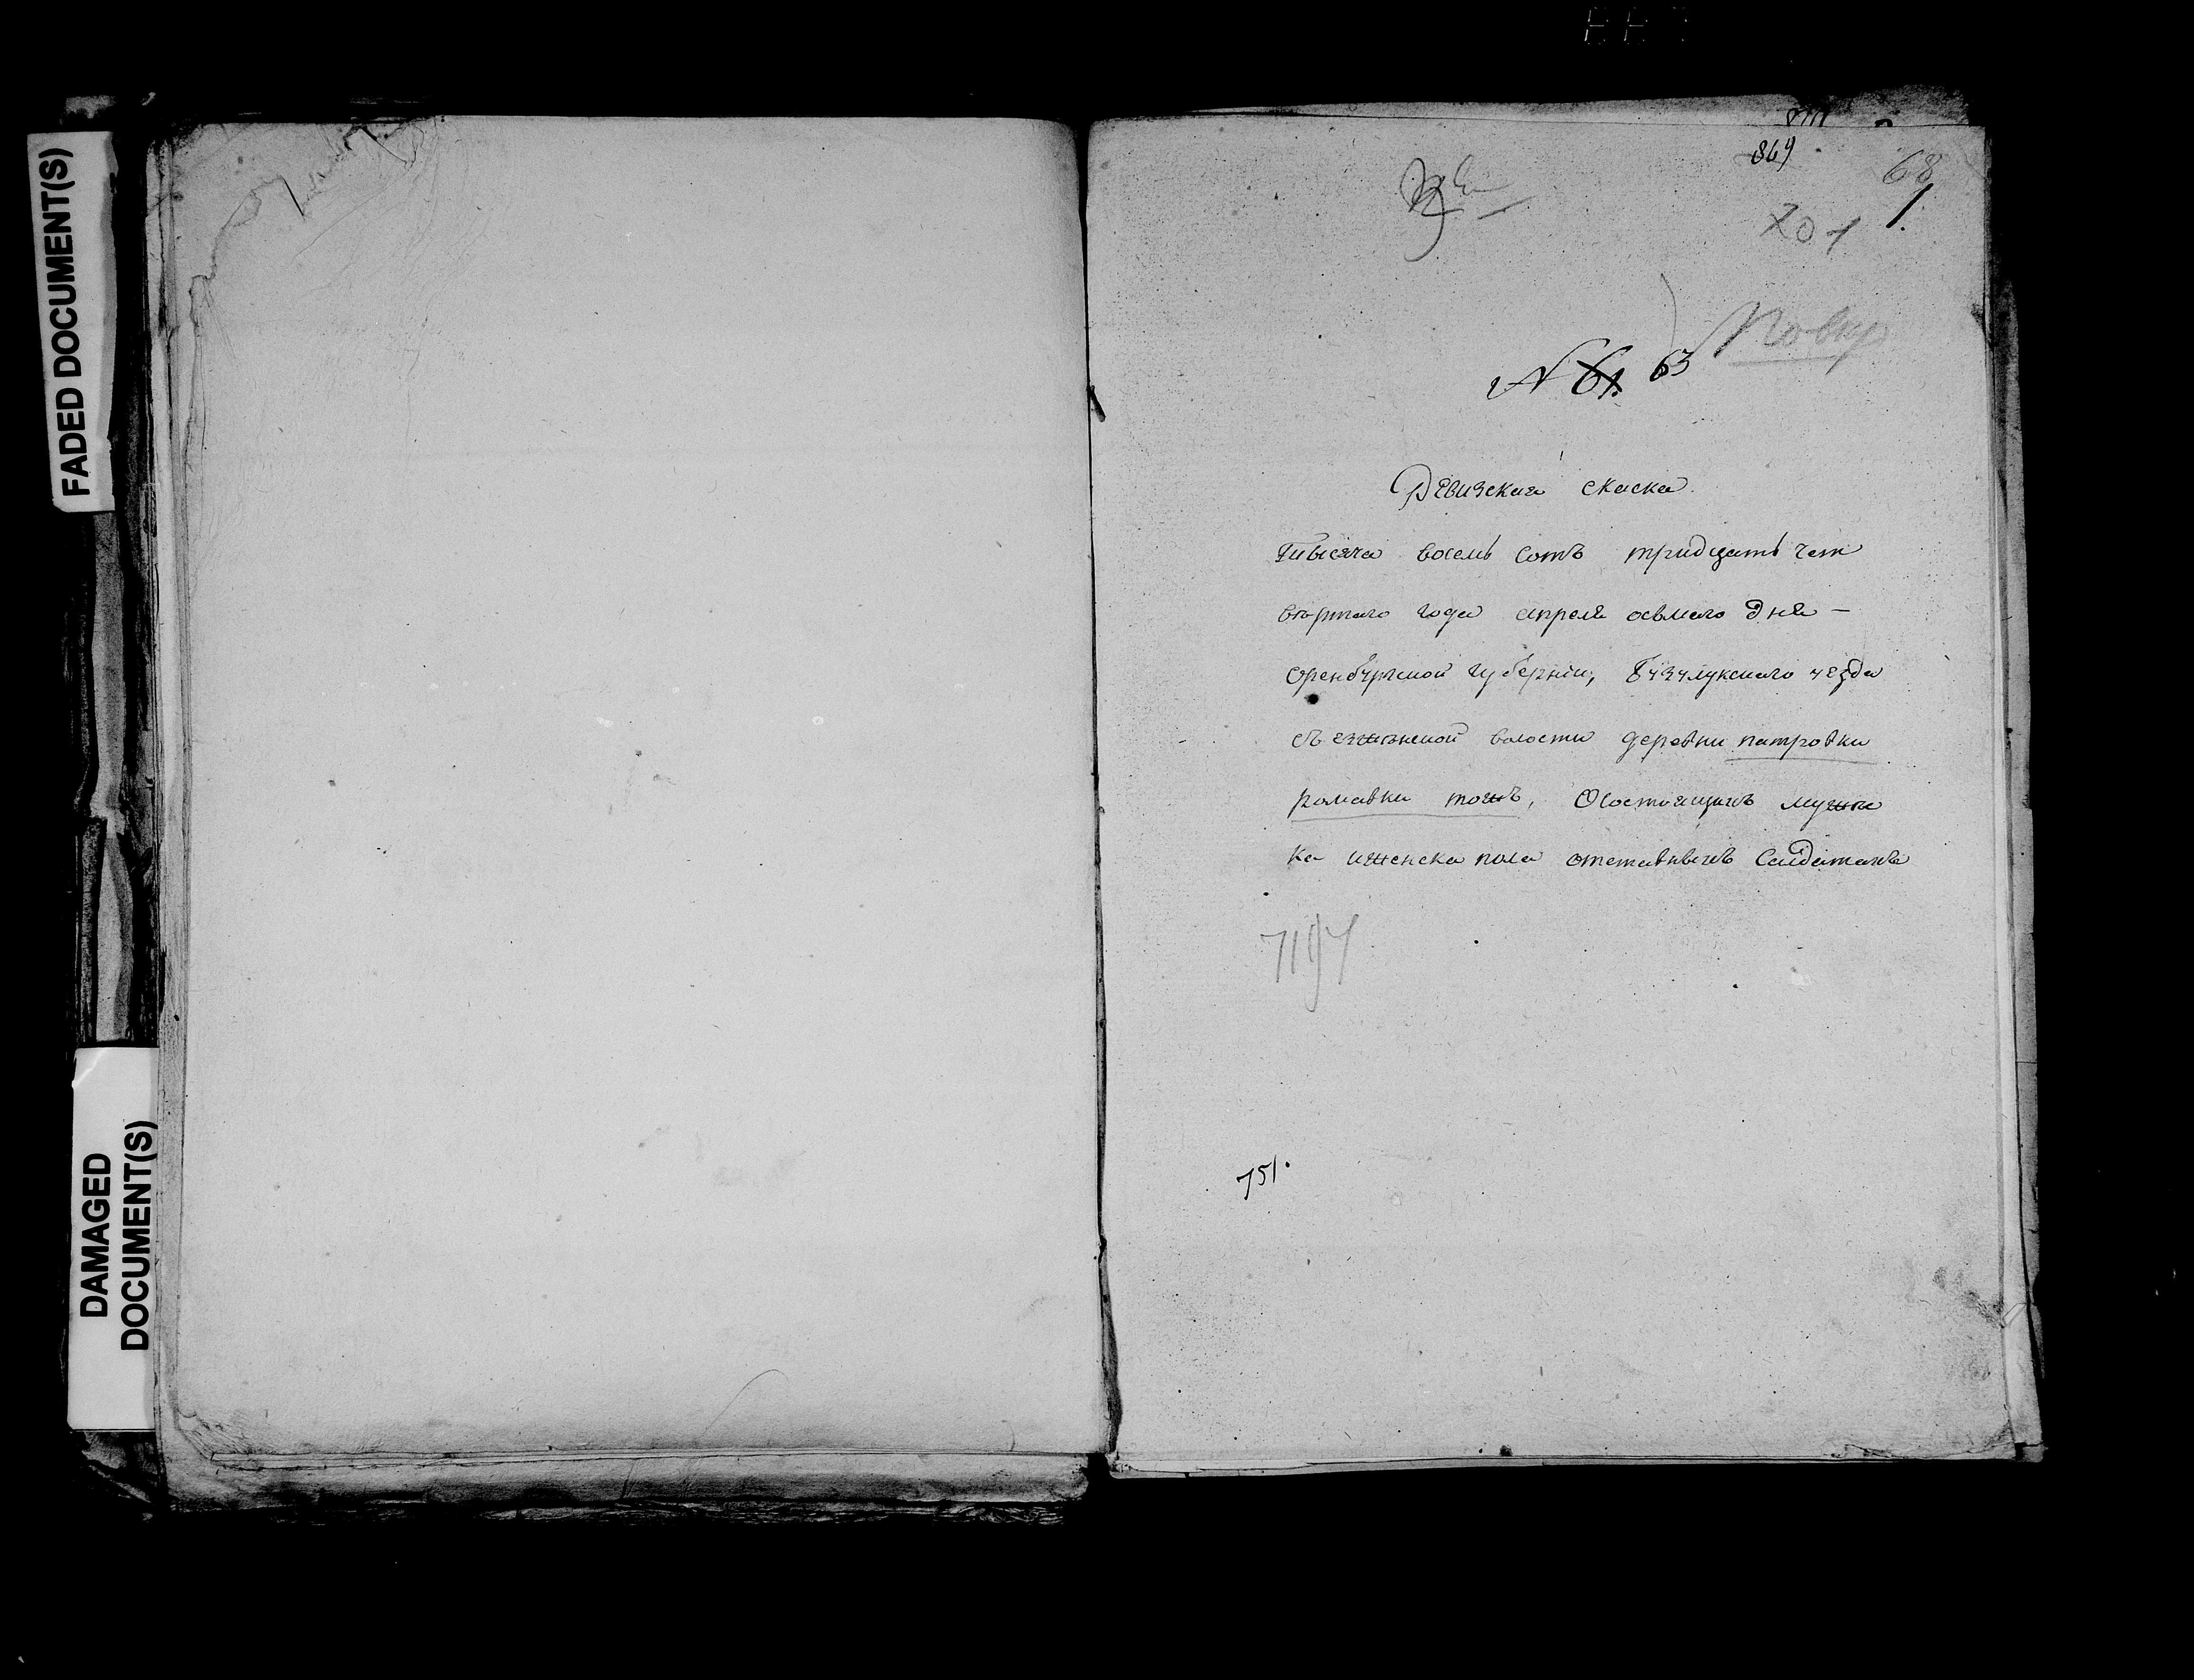 FADED DOCUMENT(S)
DAMAGED
DOCUMENT(S)
869
68
1.
701
N 61. 63
Ревизская скаска
Тысяча восемь сотъ тридцать чет
вертаго года апреля осьмаго дня —
Оренбургской губернии, Бузулукскаго уезда
съезженской волости деревни патровки
Ромавки тожъ, Осостоящихъ мужес
ка иженска пола отставныхъ Салдатахъ
7197
751.